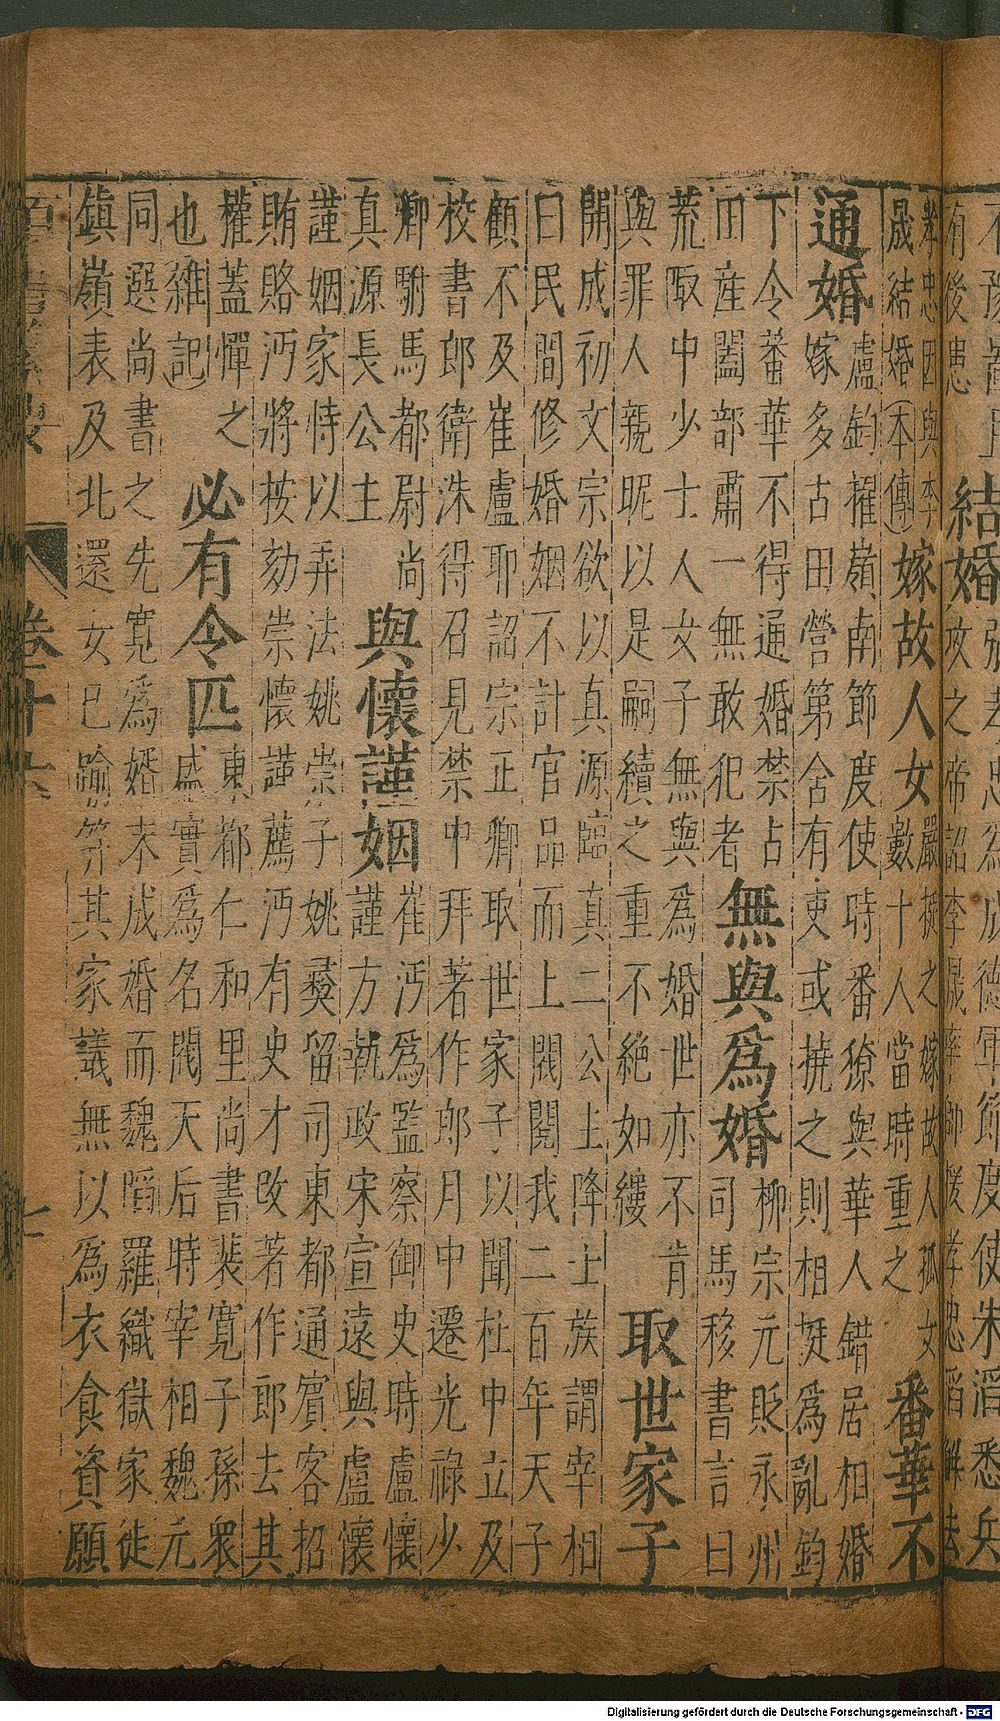 結婚 張孝忠為成德軍節度使朱滔悉兵
有後患
攻之帝詔李晟率師援孝忠滔解去
孝忠因與李
晟結婚(本傳)
嫁故人女
嚴挺之嫁故人孤女
數十人當時重之
番華不
通婚
盧鈞擢嶺南節度使時番獠與華人錯居相婚
嫁多占田營第舍有吏或撓之則相挺為亂鈞
下令蕃華不得通婚禁占
田産闔部肅一無敢犯者
無與爲婚
柳宗元貶永州
司馬移書言曰
荒陬中少士人女子無與爲婚世亦不肯
與罪人親昵以是嗣續之重不絶如縷
取世家子
開成初文宗欲以真源臨真二公主降士族謂宰相
曰民間修婚姻不計官品而上閥閱我二百年天子
顧不及崔盧耶詔宗正卿取世家子以聞杜中立及
校書郎衛洙得召見禁中拜著作郎月中遷光祿少
卿駙馬都尉尚
真源長公主
與懷謹姻
崔沔爲監察御史時盧懷
謹方執政宋宣遠與盧懷
謹姻家恃以弄法姚崇子姚彞留司東都通賓客招
賄賂沔將按劾崇懷謹薦沔有史才改著作郎去其
權蓋憚之
也雜記)
必有令匹
東都仁和里尚書裴寬子孫衆
盛實爲名閥天后時宰相魏元
同選尚書之先寬爲婿未成婚而魏陷羅織獄家徙
鎮嶺表及北還女已踰笄其家議無以爲衣食資願
卷十六
七
Digitalisierung gefördert durch die Deutsche Forschungsgemeinschaft - DFG